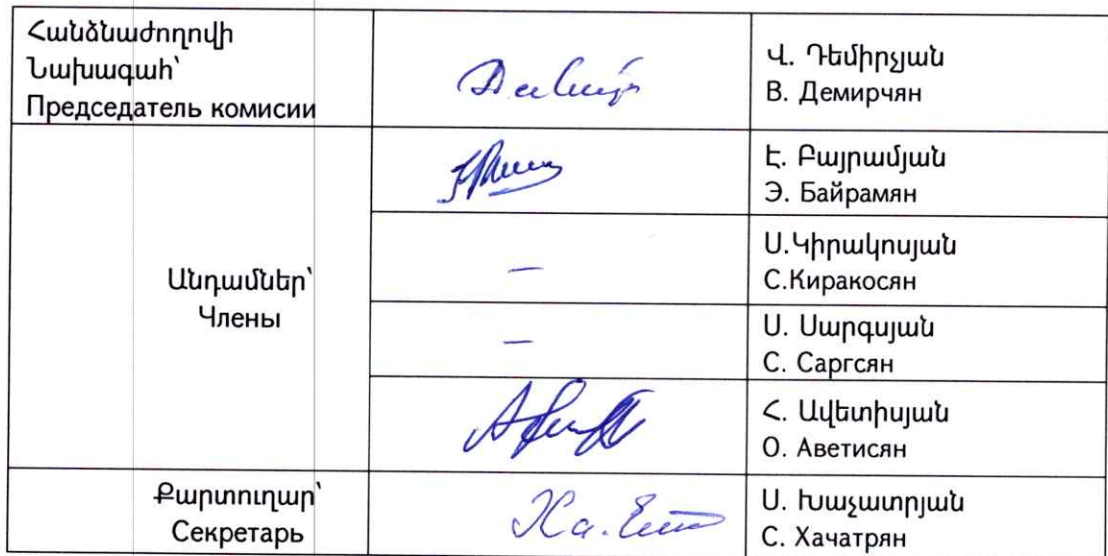 Հանձնաժողովի
Նախագահ՝
Председатель комисии
Վ. Դեմիրչյան
В. Демирчян
Անդամներ՝
Члены
Է. Բայրամյան
Э. Байрамян
–
Ս.Կիրակոսյան
С.Киракосян
–
Ս. Սարգսյան
С. Саргсян
Հ. Ավետիսյան
О. Аветисян
Քարտուղար՝
Секретарь
Ս. Խաչատրյան
С. Хачатрян